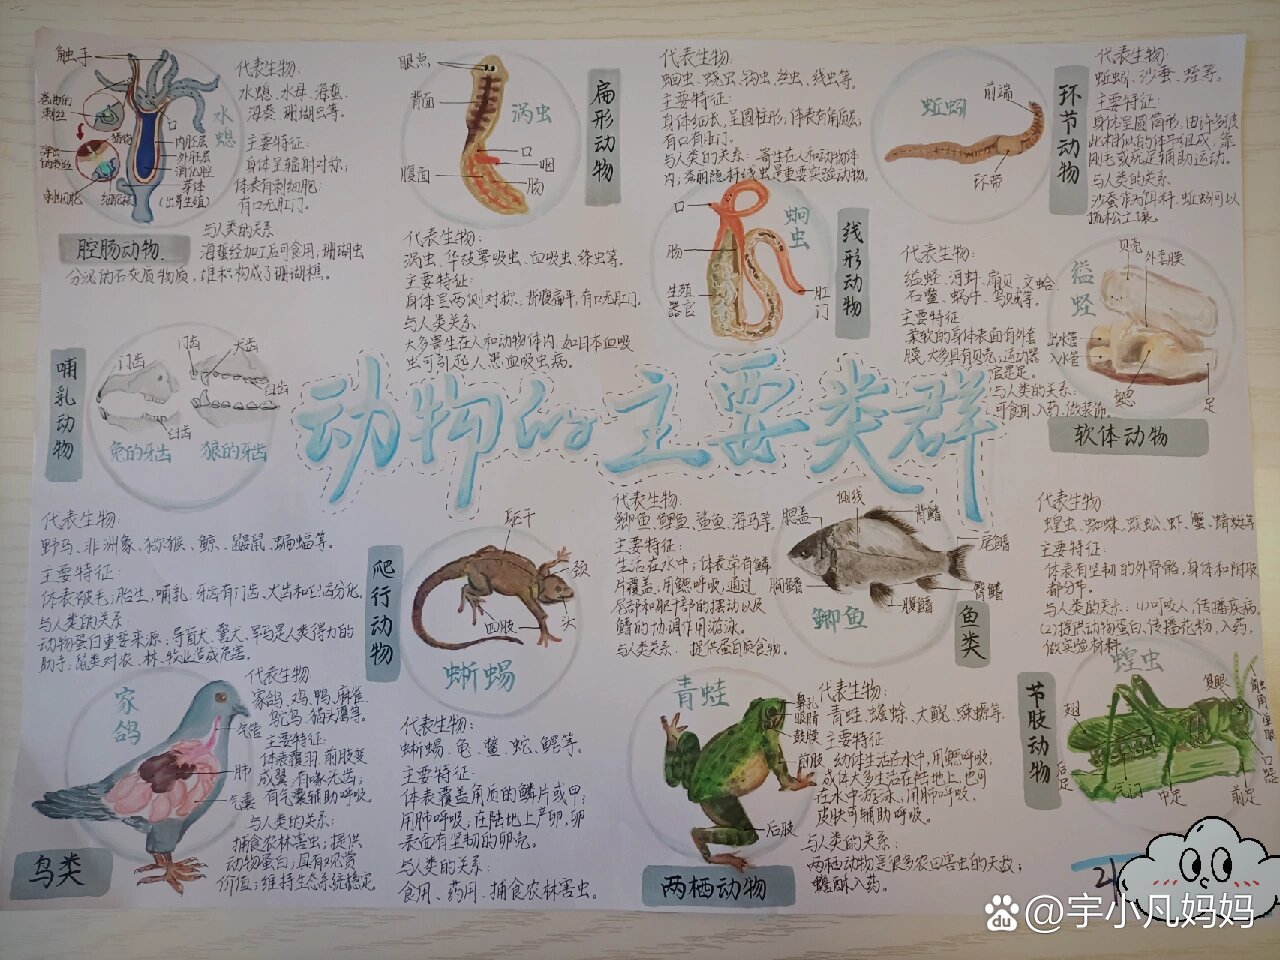 动物的主要类群
触手
水螅
口
内胚层
外胚层
消化腔
芽体
(出芽生殖)
刺细胞
腔肠动物
代表生物:
水螅、水母、海蜇、
海葵、珊瑚虫等。
主要特征:
身体呈辐射对称;
体表有刺细胞;
有口无肛门。
与人类的关系:
海蜇经加工后可食用,珊瑚虫
分泌的石灰质物质,堆积构成了珊瑚礁。
眼点
背面
腹面
涡虫
口
咽
肠
扁形动物
代表生物:
涡虫、华枝睾吸虫、血吸虫、绦虫等。
主要特征:
身体呈两侧对称、背腹扁平,有口无肛门。
与人类关系:
大多寄生在人和动物体内,如日本血吸
虫可引起人患血吸虫病。
代表生物:
蛔虫、蛲虫、钩虫、丝虫、线虫等。
主要特征:
身体细长,呈圆柱形,体表有角质层,
有口有肛门。
与人类的关系:寄生在人和动物体
内;秀丽隐杆线虫是重要实验动物。
口
肠
生殖
器官
蛔虫
肛门
线形动物
蚯蚓
前端
环带
环节动物
代表生物:
蚯蚓、沙蚕、蛭等。
主要特征:
身体呈圆筒形,由许多彼
此相似的体节组成,靠
刚毛或疣足辅助运动。
与人类的关系
沙蚕作为饵料,蚯蚓可以
疏松土壤。
代表生物:
缢蛏、河蚌、扇贝、文蛤、
石鳖、蜗牛、乌贼等。
主要特征
柔软的身体表面有外套
膜,大多具有贝壳;运动器
官是足。
与人类的关系:
可食用入药,做装饰。
缢蛏
贝壳
外套膜
出水管
入水管
鳃
足
软体动物
哺乳动物
门齿
臼齿
兔的牙齿
门齿
犬齿
臼齿
狼的牙齿
代表生物:
野马、非洲象、猕猴、鲸、鼹鼠、蝙蝠等。
主要特征:
体表被毛;胎生,哺乳;牙齿有门齿、犬齿和臼齿分化。
与人类的关系:
动物蛋白重要来源、导盲犬、警犬、骡马是人类得力的
助手;鼠类对农、林、牧业造成危害。
爬行动物
躯干
颈
头
四肢
蜥蜴
代表生物:
蜥蜴、龟、鳖、蛇、鳄等。
主要特征:
体表覆盖角质的鳞片或甲;
用肺呼吸;在陆地上产卵,卵
表面有坚韧的卵壳。
与人类的关系:
食用、药用、捕食农林害虫。
代表生物:
鲫鱼、鲤鱼、鲨鱼、海马等。
主要特征:
生活在水中;体表常有鳞
片覆盖,用鳃呼吸,通过
尾部和躯干部的摆动以及
鳍的协调作用游泳。
与人类关系:提供蛋白质食物。
鳃盖
侧线
背鳍
尾鳍
臀鳍
腹鳍
胸鳍
鲫鱼
鱼类
代表生物
蝗虫、蜘蛛、蜈蚣、虾、蟹、蜻蜓等
主要特征:
体表有坚韧的外骨骼,身体和附肢
都分节。
与人类的关系:(1)可咬人,传播疾病。
(2)提供动物蛋白、传播花粉,入药,
做实验材料。
节肢动物
蝗虫
复眼
触角
单眼
口器
翅
后足
气门
中足
前足
家鸽
气管
肺
气囊
鸟类
代表生物:
家鸽、鸡、鸭、麻雀、
鸵鸟、猫头鹰等。
主要特征:
体表覆羽,前肢变
成翼,有喙无齿;
有气囊辅助呼吸。
与人类的关系:
捕食农林害虫;提供
动物蛋白;具有观赏
价值;维持生态系统稳定。
青蛙
鼻孔
眼睛
鼓膜
前肢
后肢
两栖动物
代表生物:
青蛙、蟾蜍、大鲵、蝾螈等。
主要特征
幼体生活在水中,用鳃呼吸,
成体大多生活在陆地上,也可
在水中游泳,用肺呼吸,
皮肤可辅助呼吸。
与人类的关系:
两栖动物是很多农田害虫的天敌;
蟾酥入药。
Bai du @宇小凡妈妈